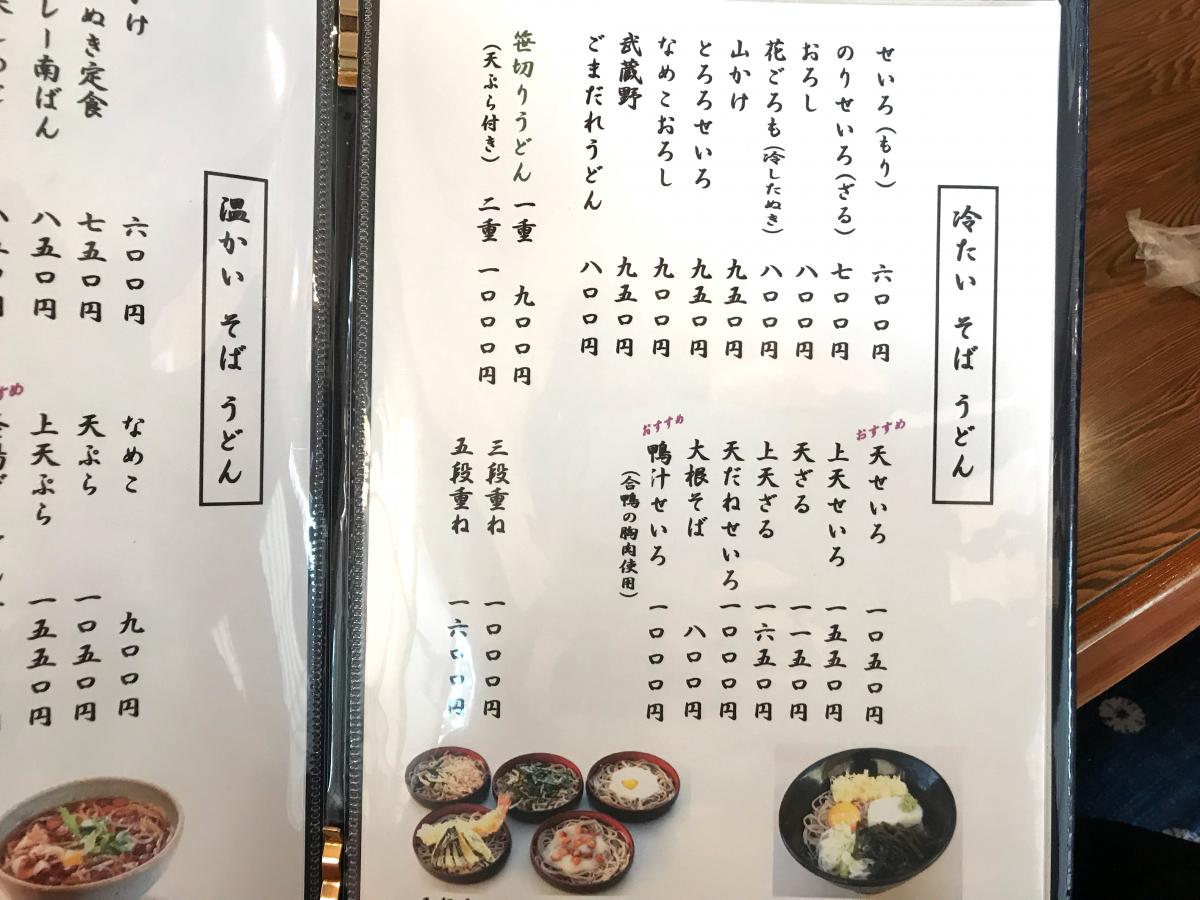 冷たい そば うどん
せいろ(もり) 六〇〇円
のりせいろ(ざる) 七〇〇円
おろし 八〇〇円
花ごろも(冷したぬき) 八〇〇円
山かけ 九五〇円
とろろせいろ 九五〇円
なめこおろし 九〇〇円
武蔵野 九五〇円
ごまだれうどん 八〇〇円
笹切りうどん 一重 九〇〇円
(天ぷら付き) 二重 一〇〇〇円
おすすめ
天せいろ 一〇五〇円
上天せいろ 一五五〇円
天ざる 一一五〇円
上天ざる 一六五〇円
天だねせいろ 一〇〇〇円
大根そば 八〇〇円
おすすめ
鴨汁せいろ 一〇〇〇円
(合鴨の胸肉使用)
三段重ね 一〇〇〇円
五段重ね 一六〇〇円
温かい そば うどん
け 六〇〇円
ぬき定食 七五〇円
レー南ばん 八五〇円
なめこ 九〇〇円
天ぷら 一〇五〇円
上天ぷら 一五五〇円
すめ